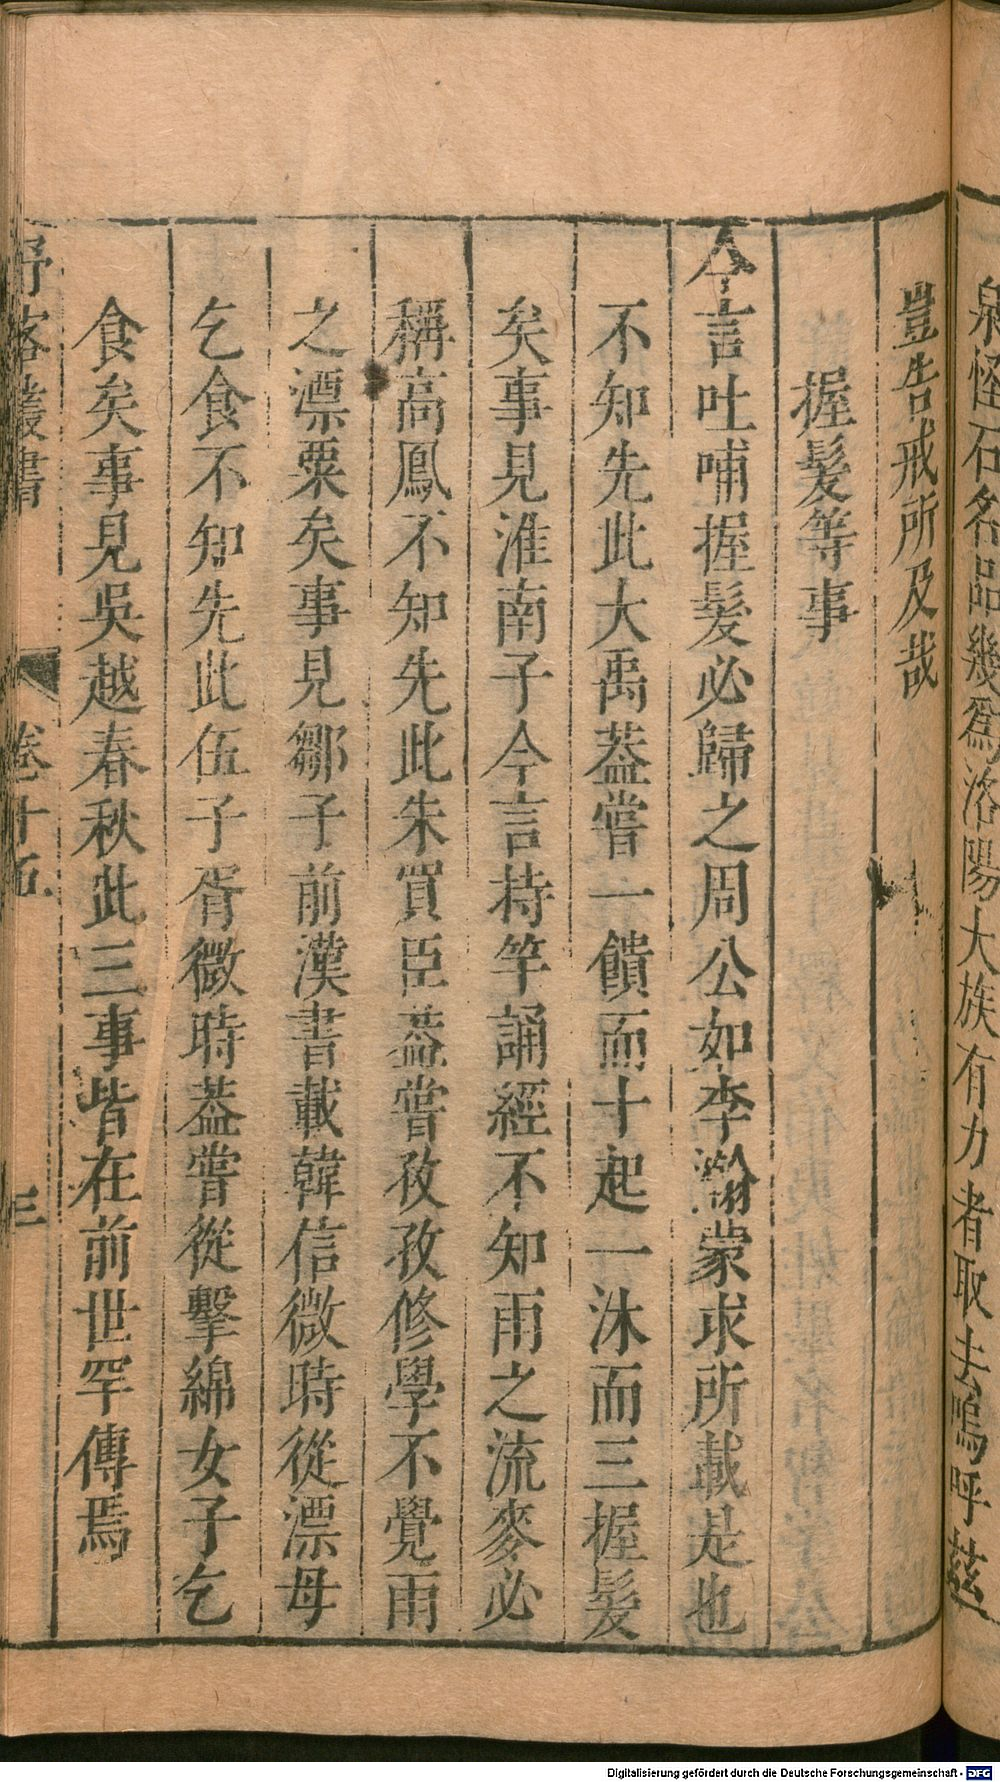 泉怪石名品幾爲洛陽大族有力者取去嗚呼兹
豈告戒所及哉
握髮等事
今言吐哺握髮必歸之周公如李瀚蒙求所載是也
不知先此大禹葢嘗一饋而十起一沐而三握髮
矣事見淮南子今言持竿誦經不知雨之流麥必
稱高鳳不知先此朱買臣葢嘗孜孜修學不覺雨
之漂粟矣事見鄒子前漢書載韓信微時從漂母
乞食不知先此伍子胥微時葢嘗從擊綿女子乞
食矣事見吳越春秋此三事皆在前世罕傳焉
野客叢書 卷十五 三
Digitalisierung gefördert durch die Deutsche Forschungsgemeinschaft - DFG